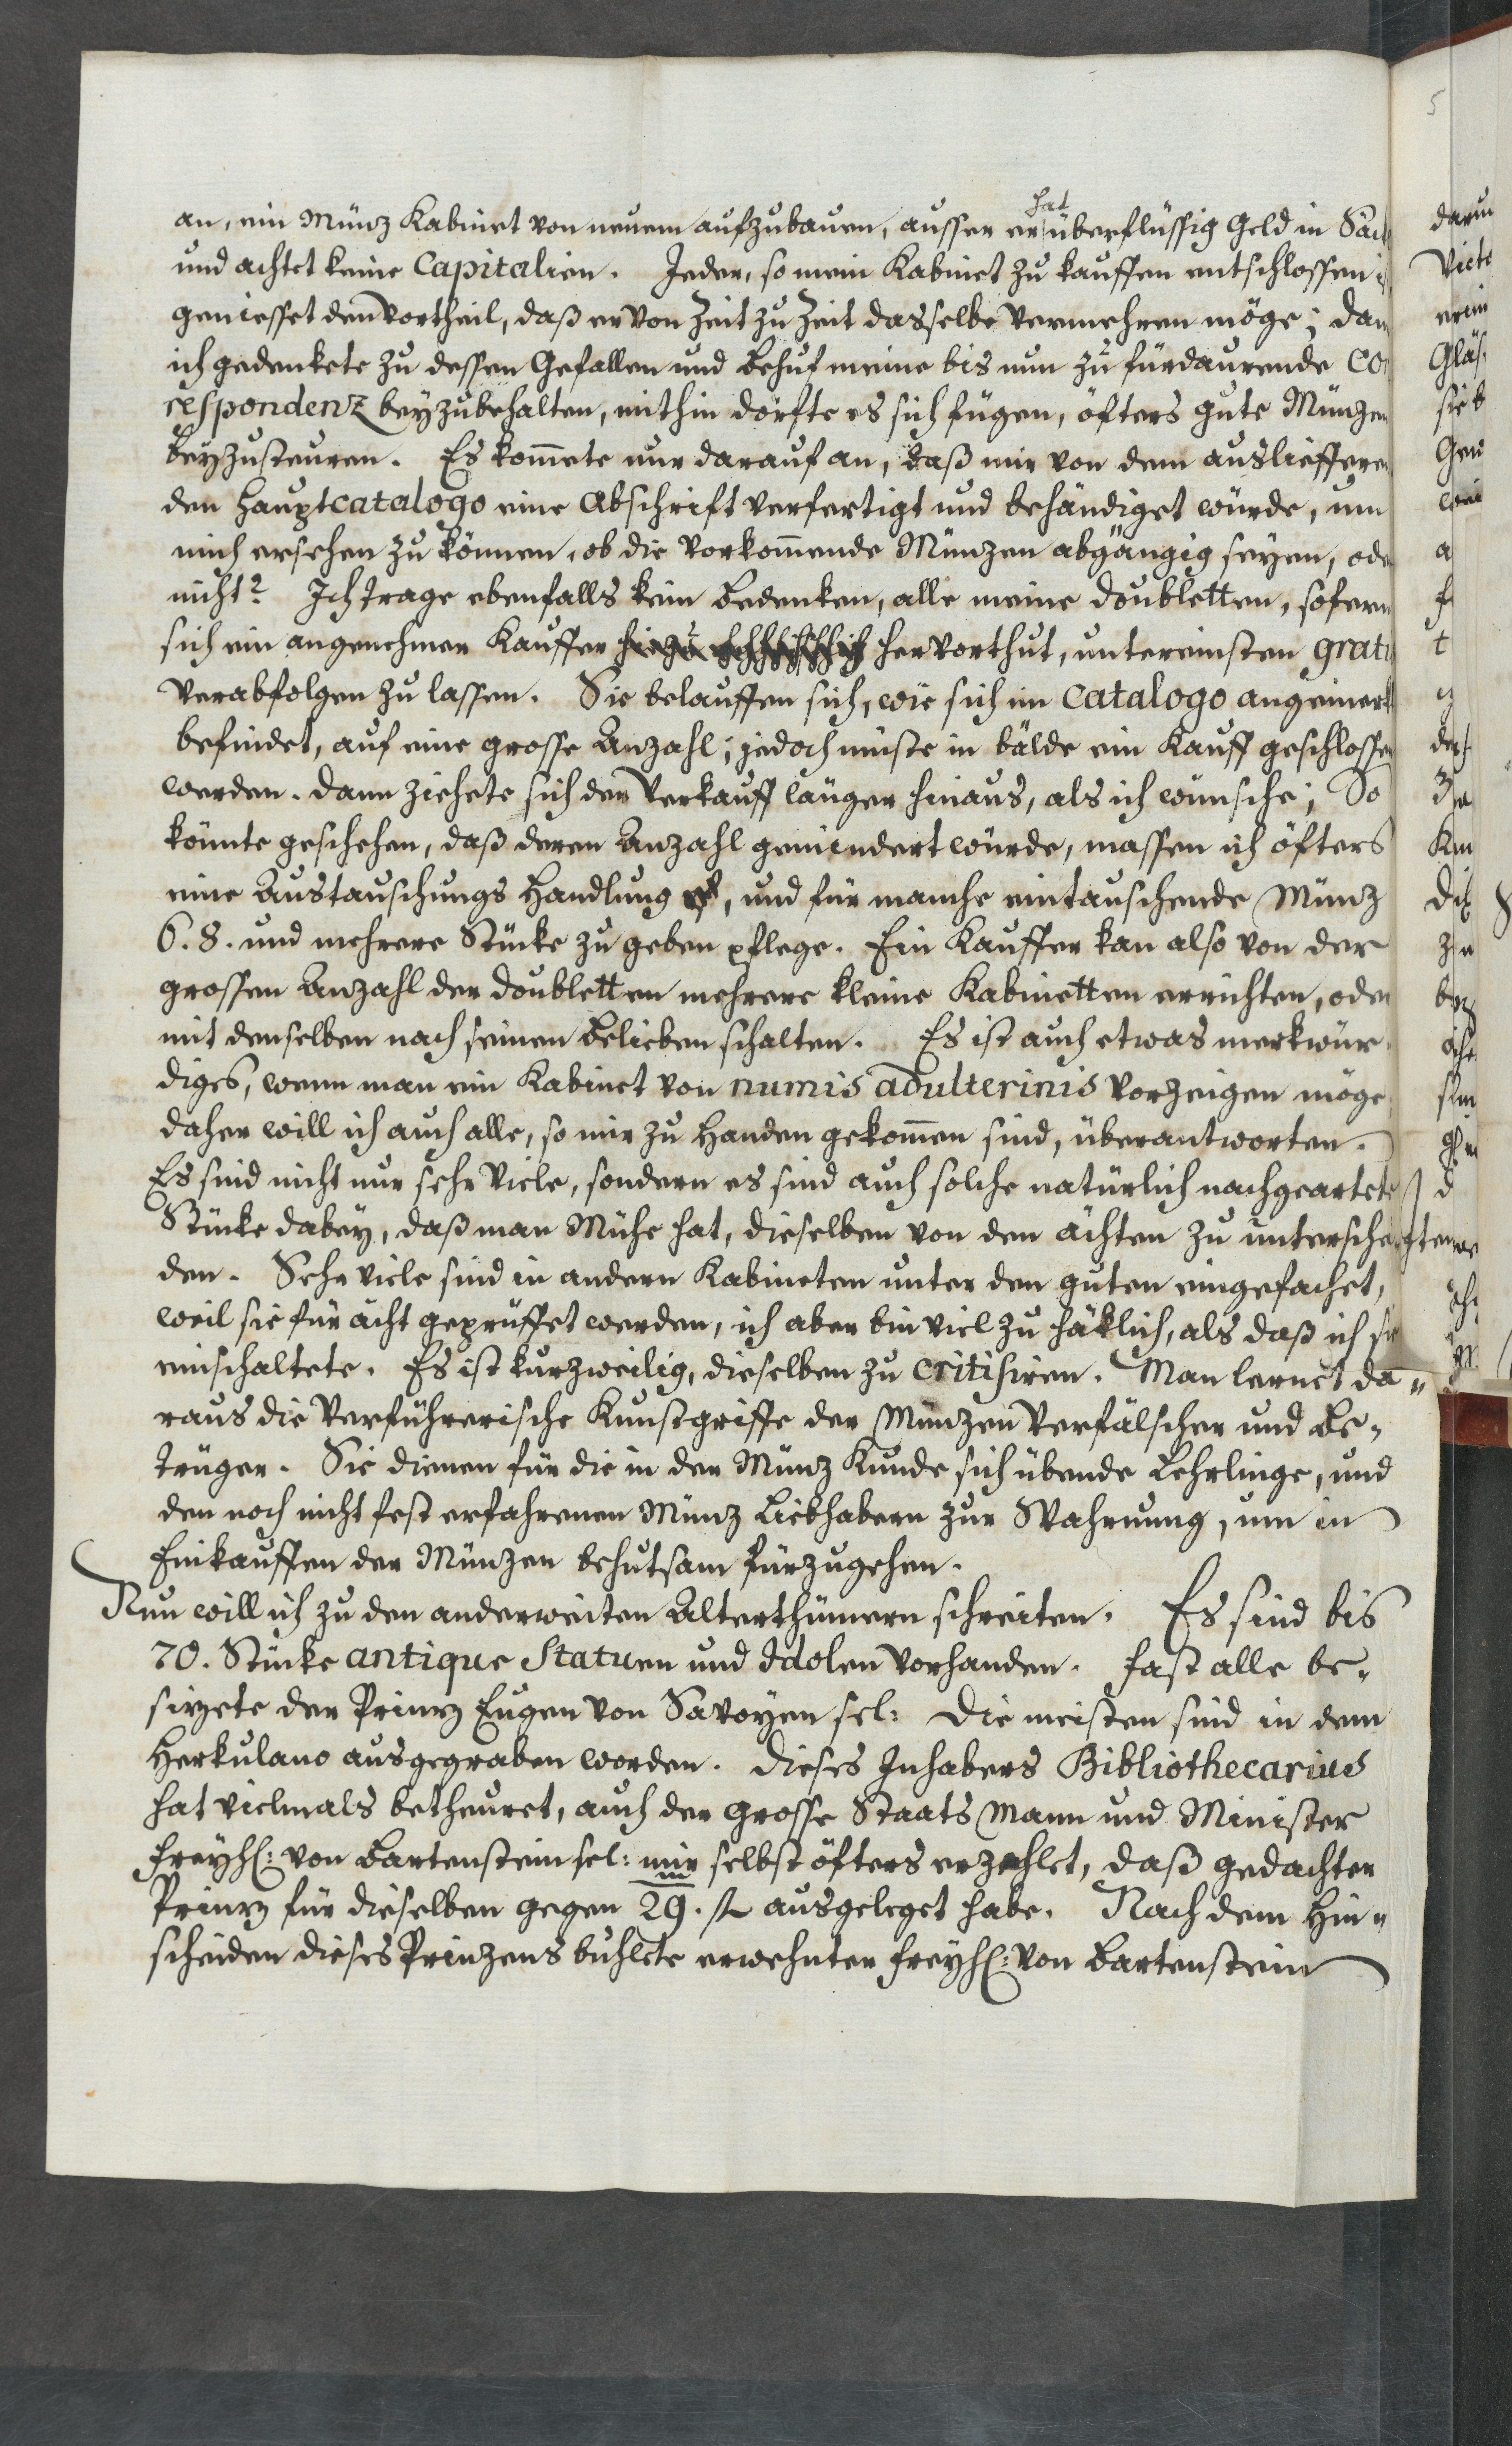 an, ein Münz Kabinet von neuem aufzubauen, ausser er hat überflüssig Geld in Säck
und achtet keine Capitalien. Jeder, so mein Kabinet zu kauffen entschlossen i
geniesset den Vortheil, daß er von Zeit zu Zeit dasselbe vermehren möge; dan
ich gedenkete zu dessen Gefallen und Behuf meine bis nun zu fürdaurende Co
respondenz beyzubehalten, mithin dörfte es sich fügen, öfters gute Münzen
beyzusteuren. Es kom̄ete nur darauf an, daß mir von dem auslieffere
den Hauptcatalogo eine Abschrift verfertigt und behändiget würde, um
mich ersehen zu können, ob die vorkom̄ende Münzen abgängig seyen, oder
nicht? Ich trage ebenfalls kein Bedenken, alle meine Doubletten, sofern
sich ein angenehmer Kauffer hervorthut, untereinsten grati
verabfolgen zu lassen. Sie belauffen sich, wie sich im Catalogo angemerkt
befindet, auf eine grosse Anzahl; jedoch müste in bälde ein Kauff geschlossen
werden. Dann ziehete sich der Verkauff länger hinaus, als ich wünsche; So
könnte geschehen, daß deren Anzahl gemindert würde, massen ich öfters
eine Austauschungs Handlung, und für manche eintauschende Münz
6. 8. und mehrere Stücke zu geben pflege. Ein Kauffer kan also von der
grossen Anzahl der Doubletten mehrere kleine Kabinetten errichten, oder
mit denselben nach seinen Belieben schalten. Es ist auch etwas merkwür
diges, wenn man ein Kabinet von numis adulterinis vorzeigen möge
daher will ich auch alle, so mir zu Handen gekom̄en sind, überantworten.
Es sind nicht nur sehr viele, sondern es sind auch solche natürlich nachgeartete
Stücke dabey, daß man Mühe hat, dieselben von den ächten zu untersche
den. Sehr viele sind in andern Kabineten unter den guten eingefachet,
weil sie für ächt geprüffet werden, ich aber bin viel zu häklich, als daß ich sie
einschaltete. Es ist kurzweilig, dieselben zu critisiren. Man lernet da„
raus die verführerische Kunstgriffe der Münzen Verfälscher und Be„
trüger. Sie dienen für die in der Münz Kunde sich übende Lehrlinge, und
den noch nicht fest erfahrenen Münz Liebhabern zur Wahrnung, um in
Einkauffen der Münzen behutsam fürzugehen.
Nun will ich zu den anderweiten Alterthümern schreiten. Es sind bis
70. Stücke antique Statuen und Idolen vorhanden. Fast alle be„
sizete der Prinz Eugen von Savoyen sel: Die meisten sind in dem
Herkulano ausgegraben worden. Dieses Inhabers Bibliothecarius
hat vielmals betheuret, auch der grosse Staats Mann und Minister
Freyh: von Bartenstein sel: mir selbst öfters erzehlet, daß gedachter
Prinz für dieselben gegen 29. m fl ausgeleget habe. Nach dem Hin„
scheiden dieses Prinzens buhlete erwehnter Freyh: von Bartenstein